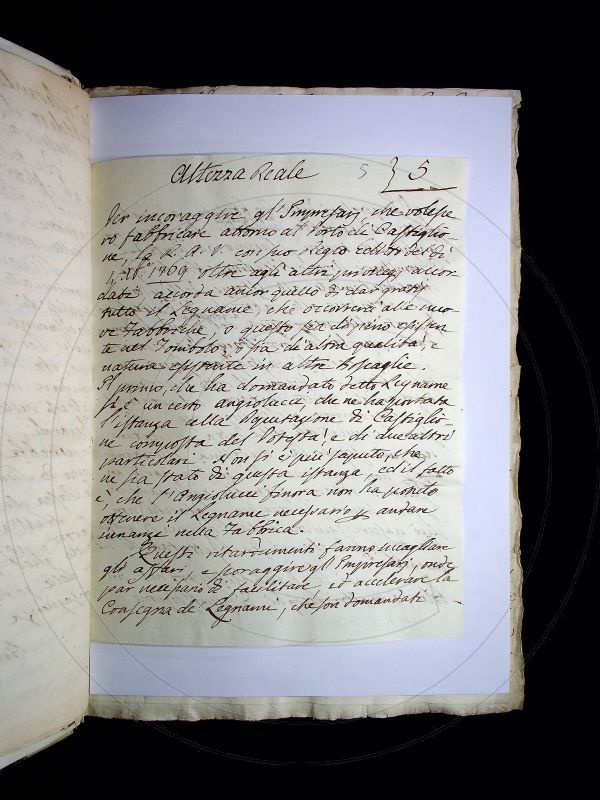 Altezza Reale
5 } 5
Per incoraggire gl'Impresarj, che volesse
ro fabbricare attorno al Porto di Castiglio-
ne, la R. A. V. con suo Regio Editto del dì
XI. 1769 oltre agli altri privilegj accor
dati accorda anche quello di dar gratis
tutto il Legname, che occorrerà alle nuo-
ve Fabbriche, o questo sia di pino esisten
te nel Tombolo, o sia di altra qualità, e
natura esistente in altre Boscaglie.
Il primo, che ha domandato detto Legname
si è un certo Angiolucci che ne ha portata
l'istanza alla Deputazione di Castiglio-
ne composta del Potestà, e di due altri
particolari. Non si è più saputo, che
ne sia stato di questa istanza, ed il fatto
è, che l'Angiolucci finora non ha potuto
ottenere il Legname necessario p andare
innanzi nella Fabbrica.
Questi ritardamenti fanno incagliare
gli affari, e scoraggire gl'Impresarj, onde
par necessario di facilitare, ed accelerare la
Consegna de' Legnami, che son domandati